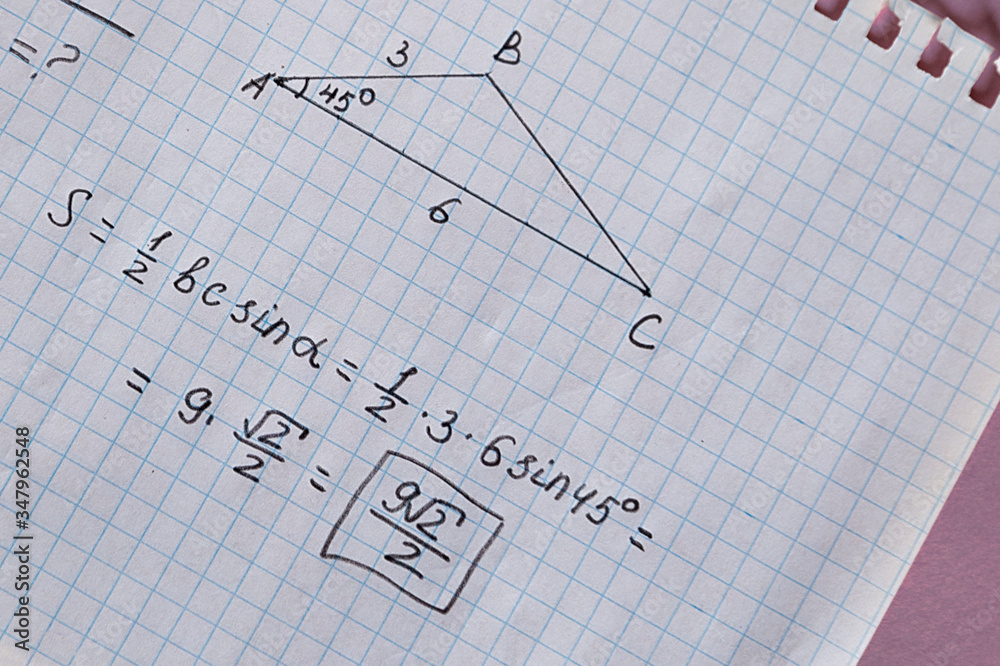 = ?
3
B
A
45°
6
C
S = 1/2 bc sinα = 1/2 · 3 · 6 sin45° =
= 9 · √2/2 = 9√2/2
Adobe Stock | #347962548